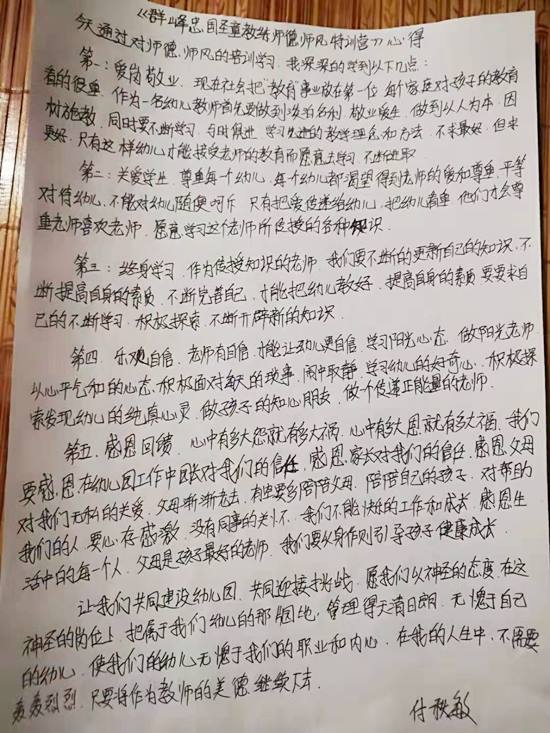 《群峰忠,国圣童教练师德师风特训营》心得
今天通过对师德,师风的培训学习,我深深的学到以下几点:
第一:爱岗敬业,现在社会把"教育"事业放在第一位,每个家庭对孩子的教育
看的很重,作为一名幼儿教师首先要做到淡泊名利,敬业爱生,做到以人为本,因
材施教,同时要不断学习,与时俱进,学习先进的教学理念和方法,不求最好,但求
更好,只有这样幼儿才能接受老师的教育而愿意去学习,不断进取.
第二:关爱学生,尊重每个幼儿,每个幼儿都渴望得到老师的爱和尊重,平等
对待幼儿,不能对幼儿随便呵斥,只有把爱传递给幼儿,把幼儿看重,他们才会尊
重老师喜欢老师,愿意学习这个老师所传授的各种知识.
第三:终身学习,作为传授知识的老师,我们要不断的更新自己的知识,不
断提高自身的素质,不断完善自己,才能把幼儿教好,提高自身的素质要要求自
己的不断学习,积极探索,不断开辟新的知识.
第四,乐观自信,老师有自信,才能让幼儿更自信,学习阳光心态,做阳光老师
以心平气和的心态,积极面对每天的琐事,闹中取静,学习幼儿的好奇心,积极探
索发现幼儿的纯真心灵,做孩子的知心朋友,做个传递正能量的老师.
第五,感恩回馈,心中有多大怨就有多大祸,心中有多大恩就有多大福,我们
要感恩在幼儿园工作中园长对我们的信任,感恩家长对我们的信任,感恩父母
对我们无私的关爱,父母渐渐老去,有空要多陪陪父母,陪陪自己的孩子,对帮助
我们的人,要心存感激,没有同事的关怀,我们不能快乐的工作和成长,感恩生
活中的每一个人,父母是孩子最好的老师,我们要以身作则引导孩子健康成长.
让我们共同建设幼儿园,共同迎接挑战,愿我们以神圣的态度,在这
神圣的岗位上,把属于我们幼儿的那个园地,管理得天清日朗,无愧于自己
的幼儿,使我们的幼儿无愧于我们的职业和内心,在我的人生中,不需要
轰轰烈烈,只要将作为教师的美德继续下去.
付秋敏